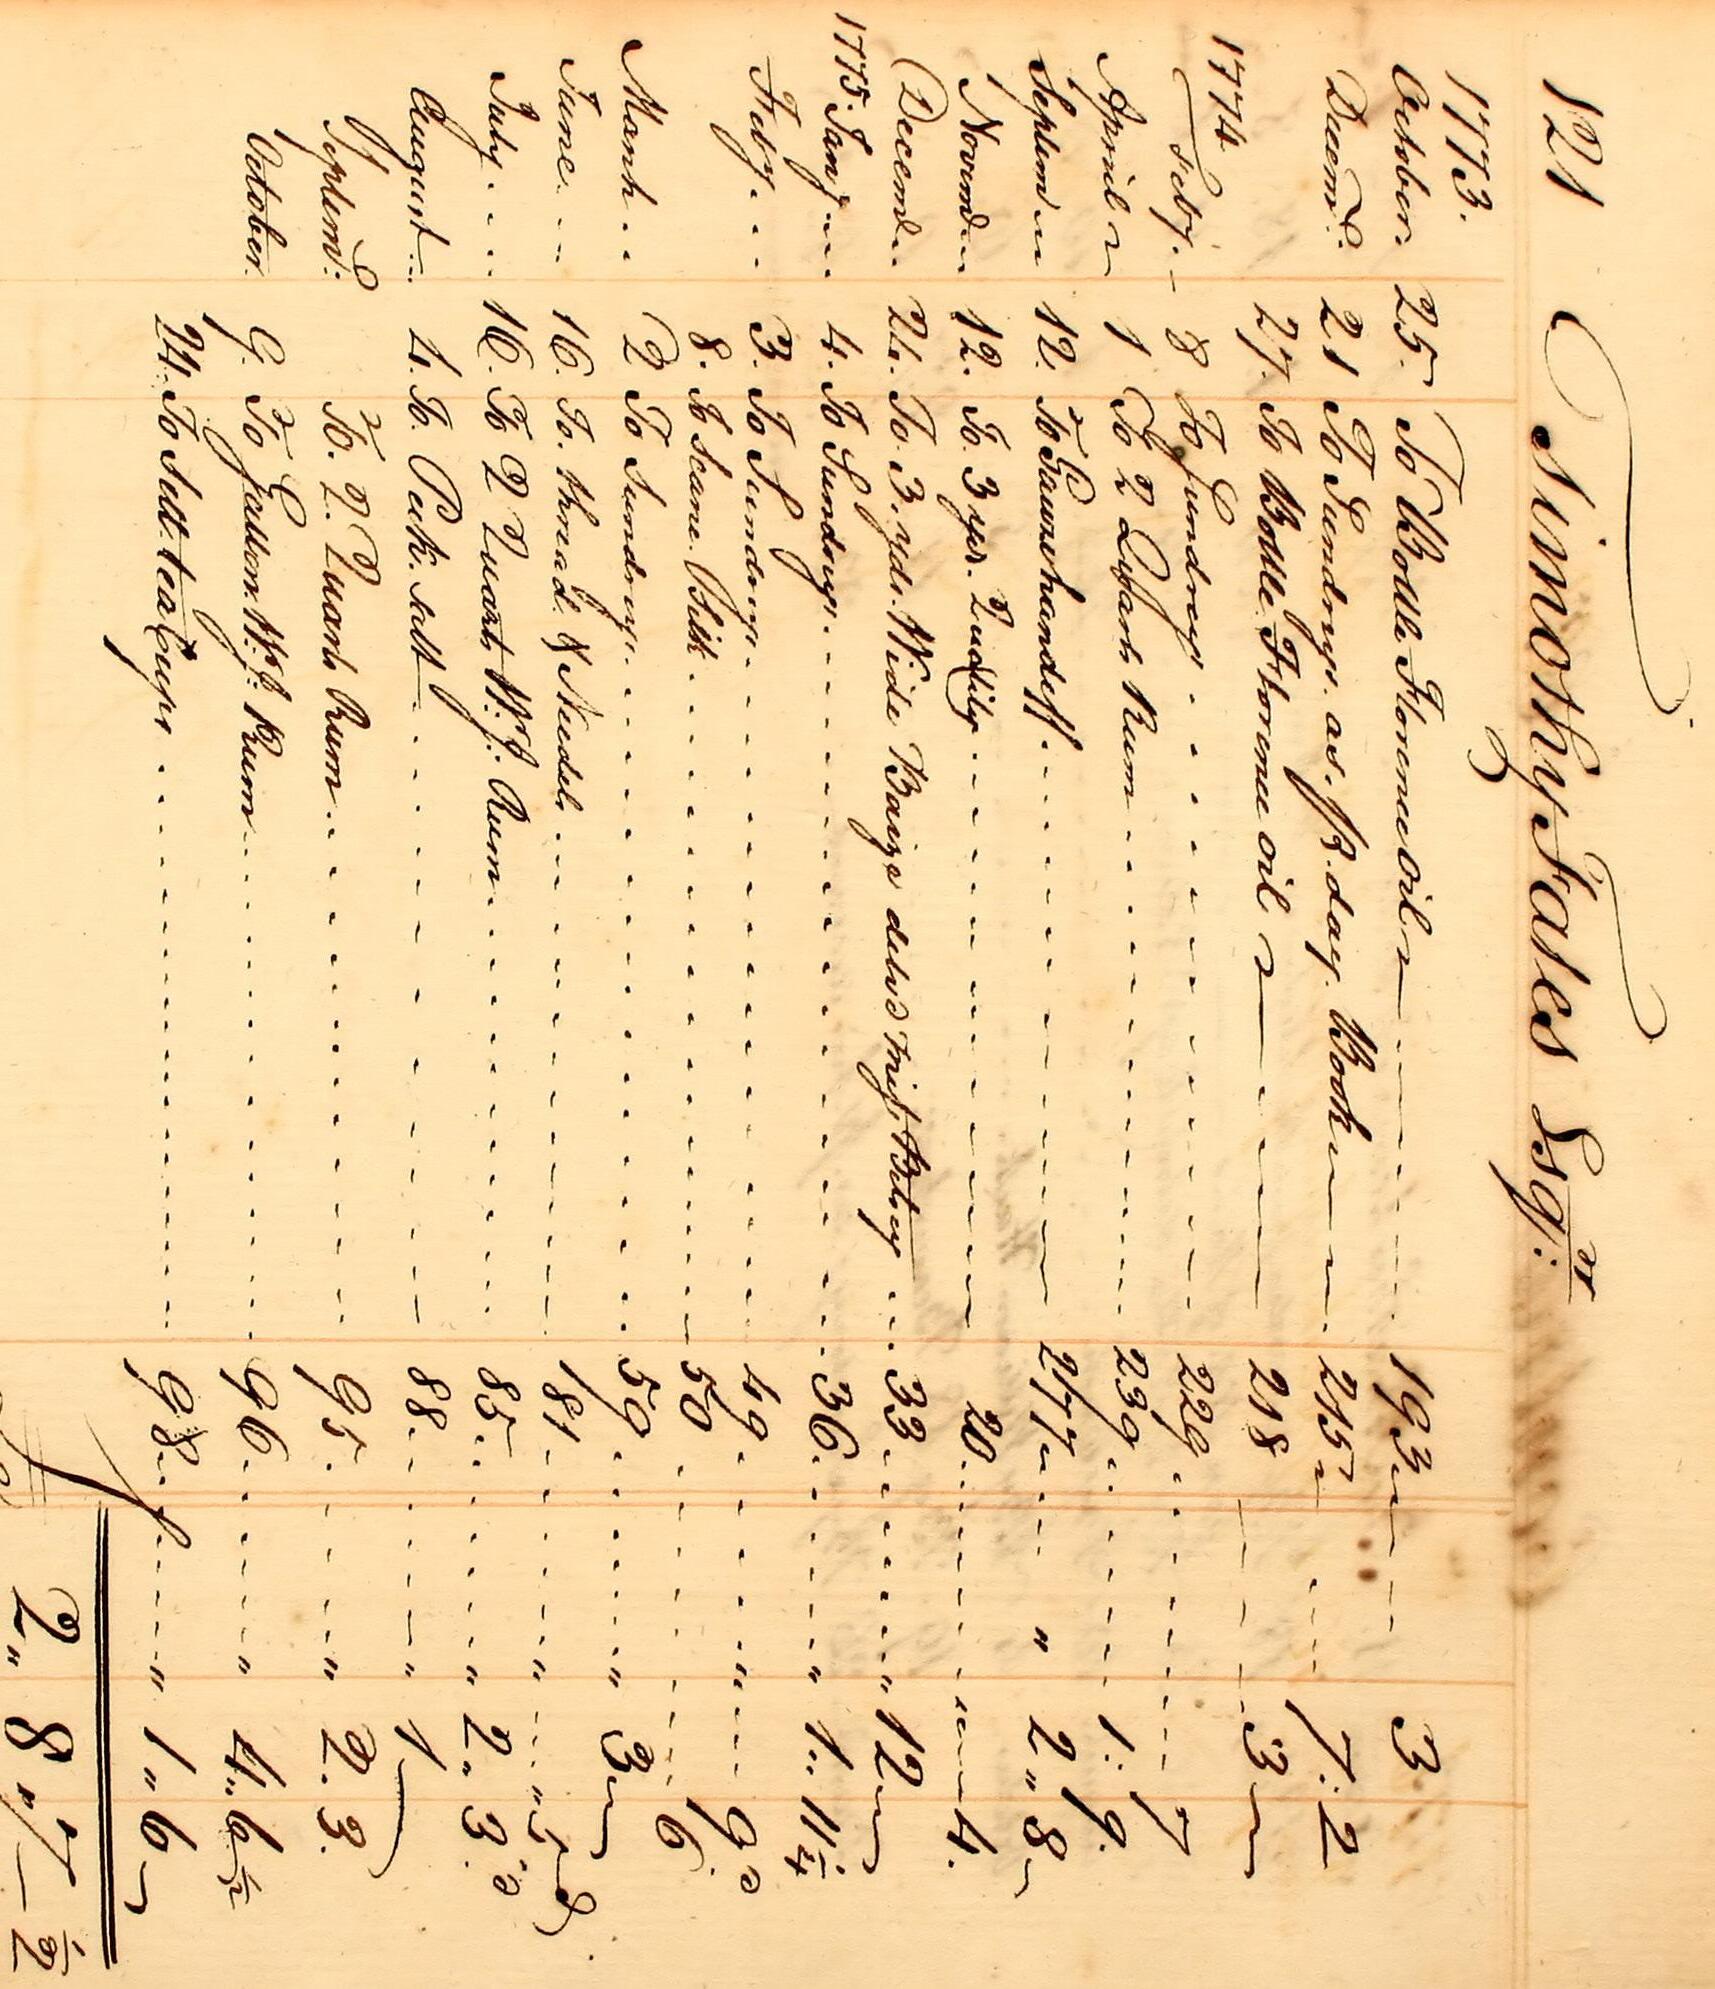 121 Timothy Fales Esqr:
1773.
October 25. To Bottle Florence oil 193 3
Decemr. 21 To Sundrys as pr. day Book 215 7:2
27. To Bottle Florence oil 218 3
1774
Feby. 8 To Sundrys 229 7
April 1 To 2 Quarts Rum 239 1:9.
Septem 12. To 277 " 2 " 8
Novem 12. To 3 yds. Quality 20 4.
Decem 21. To 3 yds. Wide Baize deld Miss Betsy 33 " 12
1775. Jany 4. To Sundrys. 36 " 1 " 11 1/4
Feby. 3. To Sundrys. 49 " 9.
8. To Scane Silk 50 6
March 2 To Sundrys 59 " 3
June 16. To. thread & Needls 181 " " 5
July 16. To 2 Quarts W. I. Rum 85 " 2 " 3.
August 4. To. Peck salt 88 " 1
Septemr. To. 2. Quarts Rum 95 " 2. 3.
October 9. To Gallon W. I. Rum 96 " 4 " 6 1/2
24. To Sett. tea Cups 98 " 1 " 6
2 " 8 " 7 1/2